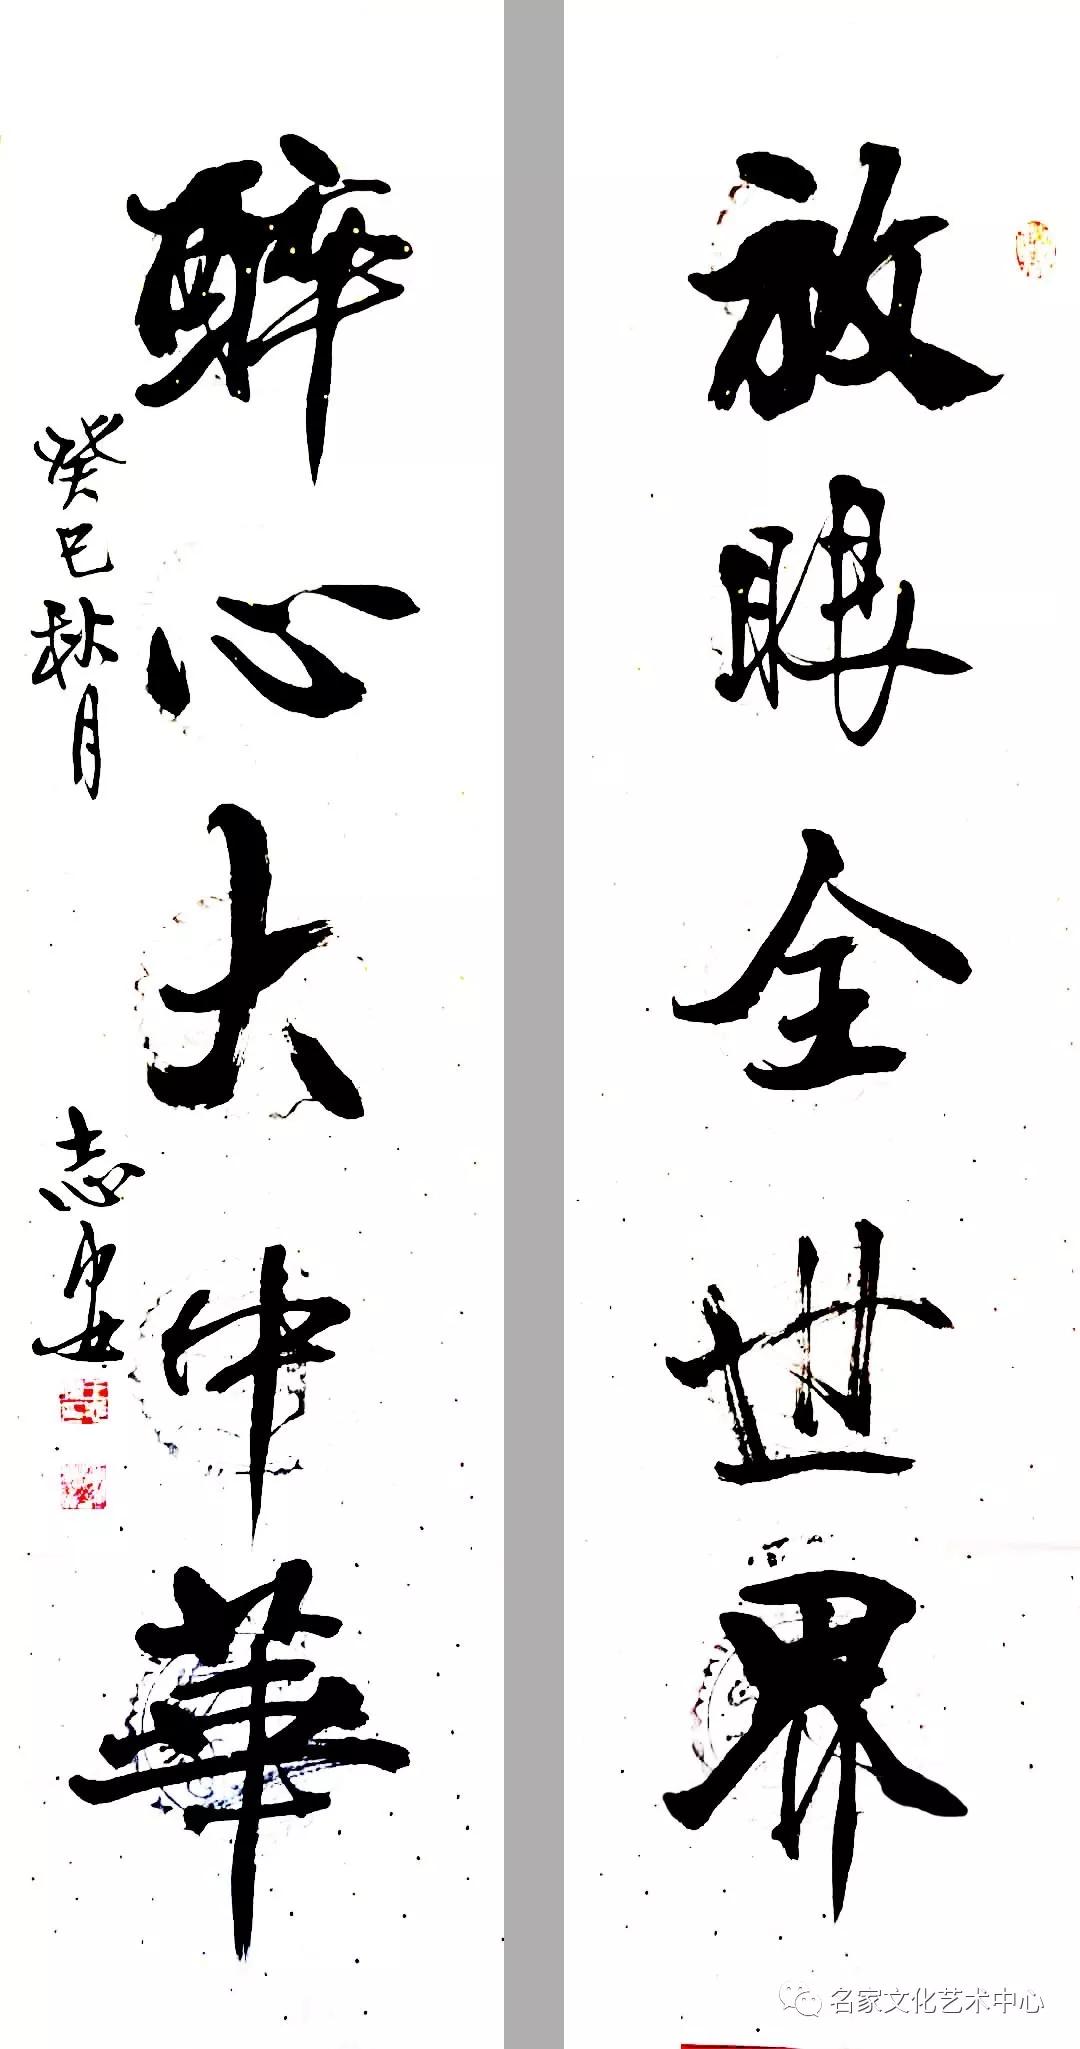 放眼全世界
醉心大中華
癸巳秋月
志安
名家文化艺术中心